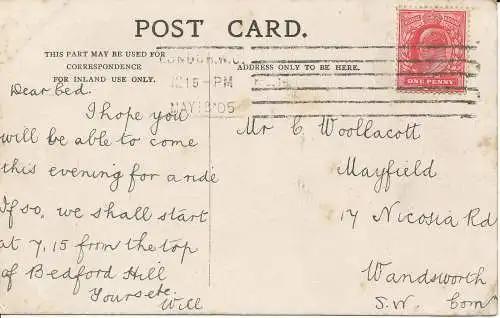 POST CARD.
THIS PART MAY BE USED FOR
CORRESPONDENCE
FOR INLAND USE ONLY.
ADDRESS ONLY TO BE HERE.
LONDON. W.C.
12 15 - PM
MAY 13 05
ONE PENNY
Dear Ced.
I hope you
will be able to come
this evening for a ride
If so, we shall start
at 7, 15 from the top
of Bedford Hill
Yours etc.
Will
Mr C. Woollacott
Mayfield
17 Nicosia Rd
Wandsworth
S.W. Comn